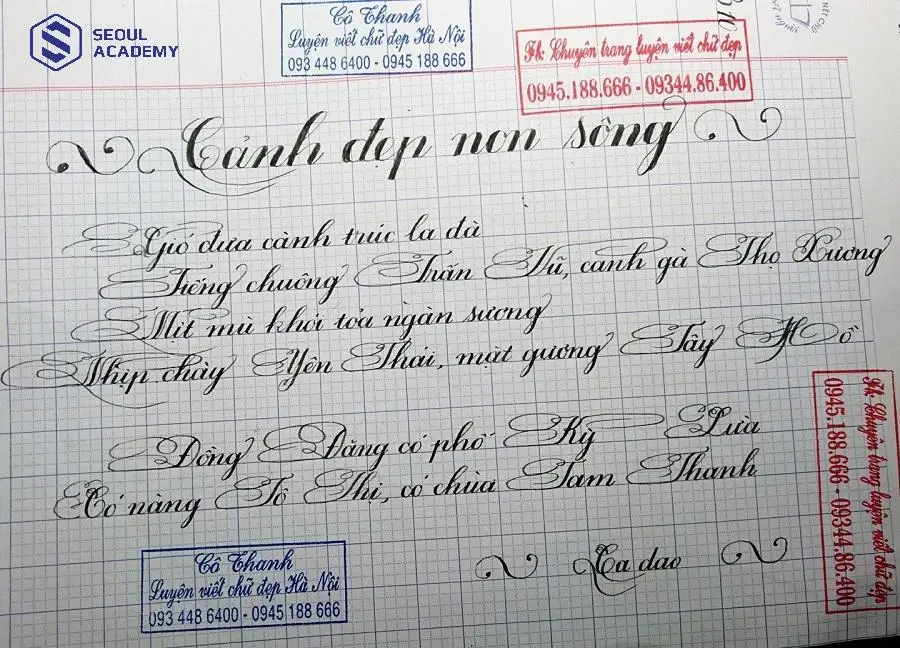 SEOUL
ACADEMY
Cô Thanh
Luyện viết chữ đẹp Hà Nội
093 448 6400 - 0945 188 666
Fk: Chuyên trang luyện viết chữ đẹp
0945.188.666 - 09344.86.400
Cảnh đẹp non sông
Gió đưa cành trúc la đà
Tiếng chuông Trấn Vũ, canh gà Thọ Xương
Mịt mù khói tỏa ngàn sương
Nhịp chày Yên Thái, mặt gương Tây Hồ
Đồng Đăng có phố Kỳ Lừa
Có nàng Tô Thị, có chùa Tam Thanh
Ca dao
Cô Thanh
Luyện viết chữ đẹp Hà Nội
093 448 6400 - 0945 188 666
Fk: Chuyên trang luyện viết chữ đẹp
0945.188.666 - 09344.86.400